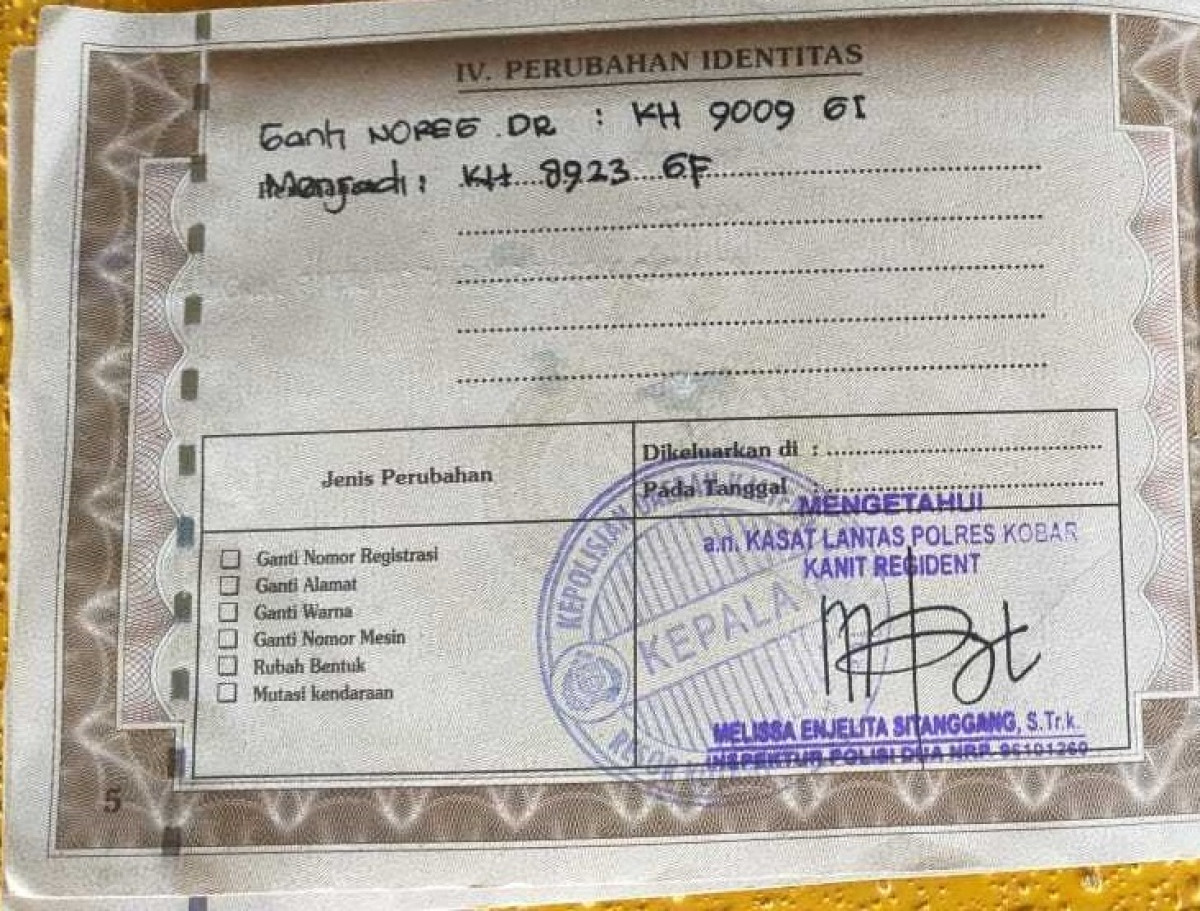 IV. PERUBAHAN IDENTITAS
Ganti NOREG DR : KH 9009 GI
Menjadi : KH 8923 GF
Jenis Perubahan
Dikeluarkan di :
Pada Tanggal :
Ganti Nomor Registrasi
Ganti Alamat
Ganti Warna
Ganti Nomor Mesin
Rubah Bentuk
Mutasi kendaraan
MENGETAHUI
a.n. KASAT LANTAS POLRES KOBAR
KANIT REGIDENT
KEPOLISIAN
KEPALA
MELISSA ENJELITA SITANGGANG, S.Tr.k.
INSPEKTUR POLISI DUA NRP. 95101260
5